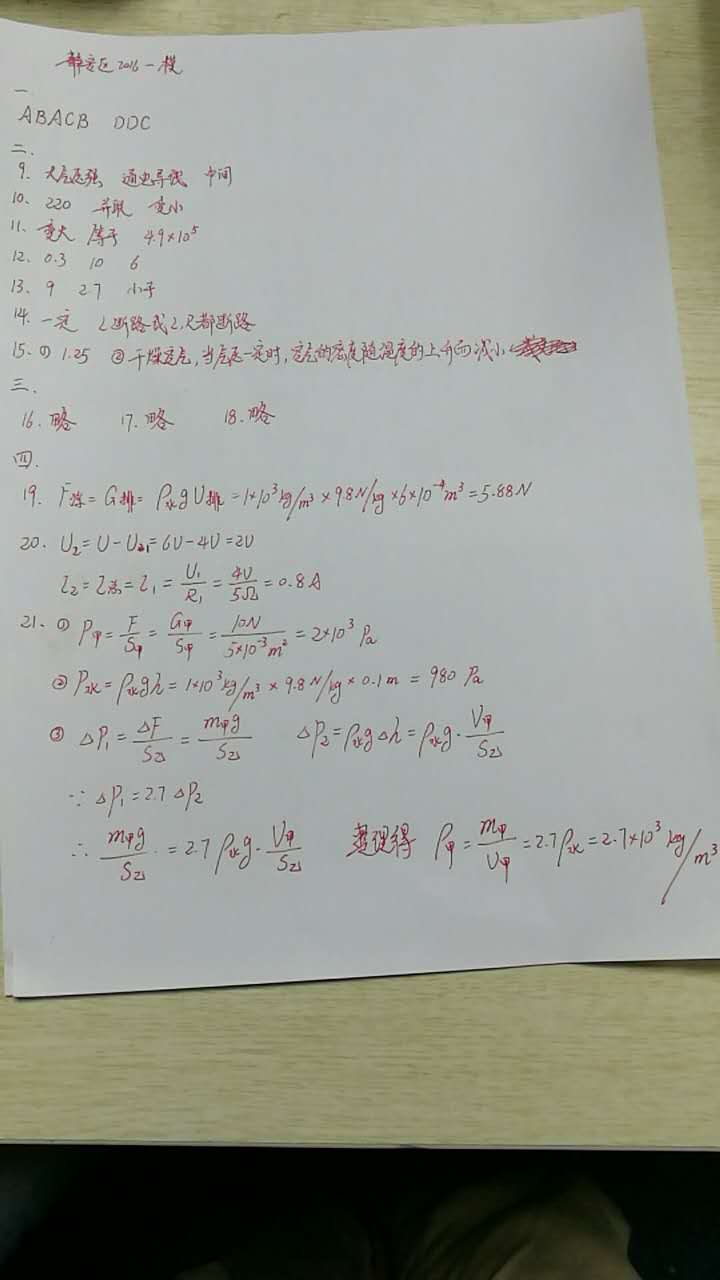 静安区2016一模
一
ABACB DDC
二.
9. 大气压强 通电导线 中间
10. 220 并联 变小
11. 变大 等于 4.9×10⁵
12. 0.3 10 6
13. 9 27 小于
14. 一定 L断路或L、R都断路
15. ① 1.25 ② 干燥空气,当气压一定时,空气的密度随温度的上升而减小
三.
16. 略 17. 略 18. 略
四.
19. F浮=G排=ρ水gV排=1×10³kg/m³×9.8N/kg×6×10⁻⁴m³=5.88N
20. U₂=U-U₁=6V-4V=2V
I₂=I总=I₁=U₁/R₁=4V/5Ω=0.8A
21. ① P甲=F/S甲=G甲/S甲=10N/5×10⁻³m²=2×10³Pa
② P水=ρ水gh=1×10³kg/m³×9.8N/kg×0.1m=980Pa
③ ΔP₁=ΔF/S乙=m甲g/S乙 ΔP₂=ρ水gΔh=ρ水g·V甲/S乙
∵ ΔP₁=2.7ΔP₂
∴ m甲g/S乙=2.7ρ水g·V甲/S乙 整理得 ρ甲=m甲/V甲=2.7ρ水=2.7×10³kg/m³